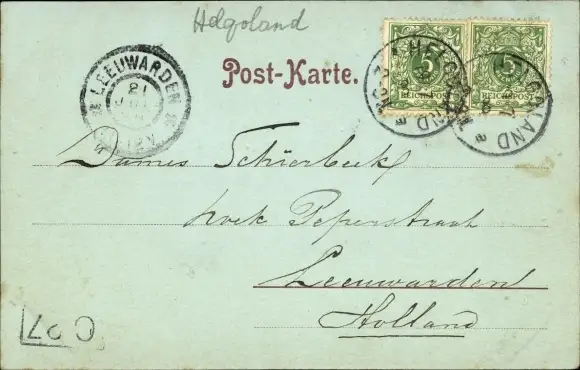 Helgoland
Post-Karte.
LEEUWARDEN
21
5
REICHSPOST
5
REICHSPOST
HELGOLAND
HELGOLAND
Dames Schierbeek
hoek Peperstraat
Leeuwarden
Holland
C 27